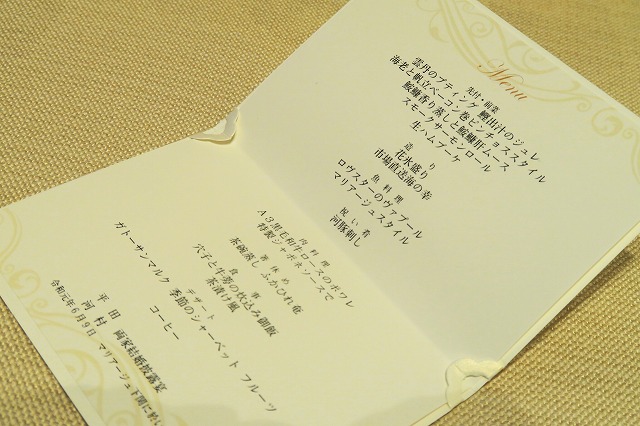 Menu
先付・前菜
雲丹のプティング 鰹出汁のジュレ
海老と帆立ベーコン巻ピンチョススタイル
鮟鱇香り蒸しと鮟鱇肝ムース
スモークサーモンロール
生ハムブーケ
造り
花氷盛り
市場直送海の幸
魚料理
ロヴスターのヴァプール
マリアージュスタイル
祝い肴
河豚刺し
肉料理
A3黒毛和牛ロースのポワレ
特製シャポネソースで
箸休め
茶碗蒸し ふかひれ竜
食事
穴子と牛蒡の炊込み御飯
茶漬け風
デザート
ガトーサンマルク 季節のシャーベット フルーツ
コーヒー
平田
河村
両家結婚披露宴
令和元年6月9日 マリアージュ下関に於い